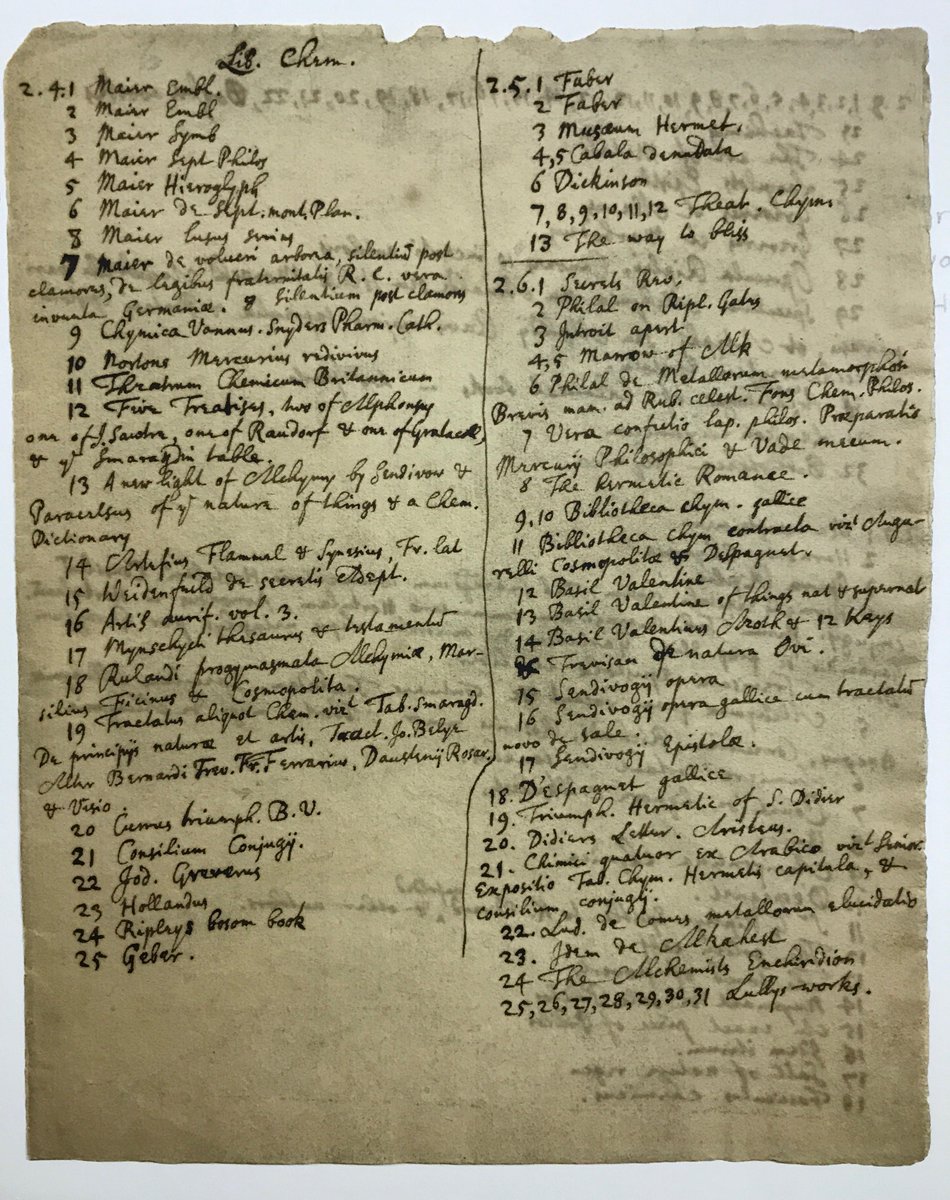 Lib. Chem.
2.4.1 Maier Embl.
2 Maier Embl
3 Maier Symb
4 Maier Sept Philos
5 Maier Hieroglyph
6 Maier de Sept. mont. Plan.
8 Maier lusus serius
7 Maier de volucri arborea, silentiũ post
clamores, de legibus fraternitatis R. C. vera
inventa Germaniæ. & Silentium post clamores
9 Chymica Vannus. Snyders Pharm. Cath.
10 Nortons Mercurius redivivus
11 Theatrum Chemicum Britannicum
12 Five Treatises, two of Alphonsus
one of J. Sawtre, one of Raudorf & one of Gratacolle,
& yᵉ Smaragdin table.
13 A new light of Alchymy by Sendivow &
Paracelsus of yᵉ nature of things & a Chem.
Dictionary
14 Artefius Flammel & Synesius, Fr. lat
15 Weidenfeild de secretis Adept.
16 Artis aurif. vol. 3.
17 Mynsychti thesaurus & testamentũ
18 Rulandi progymasmata Alchymiæ, Mar-
silius Ficinus & Cosmopolita.
19 Tractatus aliquot Chem. vizᵗ Tab. Smaragd.
De principijs naturæ et artis, Tract. Jo. Belye
Alter Bernardi Trev. Fr. Ferrarius, Daustenij Rosar.
& Visio
20 Currus triumph. B. V.
21 Consilium Conjugij.
22 Jod. Greverus
23 Hollandus
24 Ripleys bosom book
25 Geber.
2.5.1 Faber
2 Faber
3 Musæum Hermet.
4,5 Cabala denudata
6 Dickinson
7, 8, 9, 10, 11, 12 Theat. Chym.
13 The way to bliss
2.6.1 Secrets Rev.
2 Philal on Ripl. Gates
3 Introit apert
4,5 Marrow of Alk
6 Philal de Metallorum metamorphosi
Brevis man. ad Rub. celest. Fons Chem. Philos.
7 Veræ confectio lap. philos. Præparatio
Mercurij Philosophici & Vade mecum.
8 The Hermetic Romance.
9,10 Bibliotheca chym. gallice
11 Bibliotheca Chym contracta vizᵗ Augu-
relli Cosmopolitæ & Despagnet.
12 Basil Valentine
13 Basil Valentine of things nat & supernat
14 Basil Valentius Azoth & 12 Keys
Trevisan de natura Ovi.
15 Sendivogij opera
16 Sendivogij opera gallice cum tractatũ
novo de sale.
17 Sendivogij Epistolæ.
18. D'Espagnet gallice
19. Triumph. Hermetic of S. Didier
20. Didiers Letter. Aristeus.
21. Chimici quatuor Ex Arabico vizᵗ Senior.
Expositio Tab. Chym. Hermetis capitula, &
consilium conjugij.
22. Lud. de Comes metallorum elucidatio
23. Idem de Alkahest
24 The Alchemists Encheridion
25, 26, 27, 28, 29, 30, 31 Lullys works.